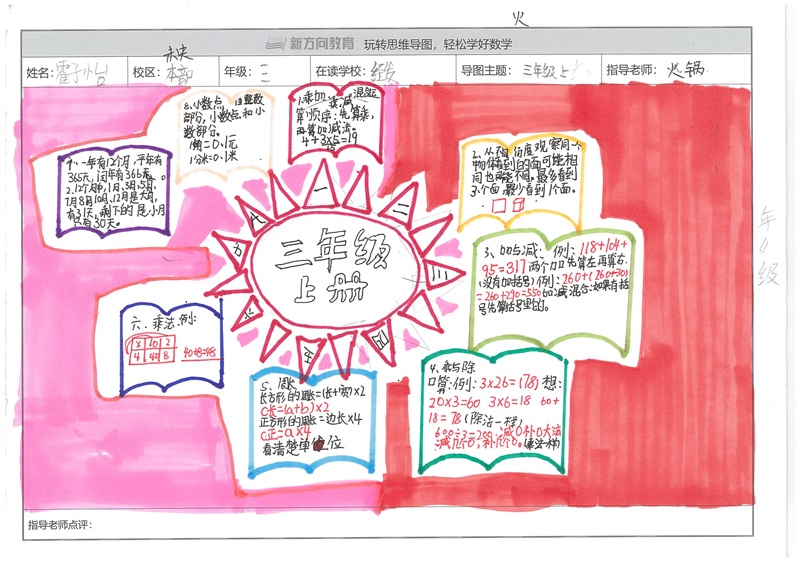 火
新方向教育 玩转思维导图，轻松学好数学
央
姓名：霍子怡 校区：本部 年级：三 在读学校： 导图主题：三年级上 指导老师：火锅
年级
三年级
上册
一
二
三
四
五
六
七
八
1.乘加 乘减 混合
算顺序：先算乘，
再算加减法。
4+3×5=19
15
2.从不同角度观察同一个
物体看到的面可能相
同也可能不同。最多看到
3个面 最少看到1个面。
3、加与减：例：118+104+
95=317 两个加 先算左再算右.
(没有加括号)例:260+(260+30)
=260+290=550 加减混合:如果有括
号先算括号里的。
4、乘与除
口算:例:3×26=(78) 想:
20×3=60 3×6=18 60+
18=78(除法一样)
600÷3=200 减0补0大法
减几个0,补几个0。乘法一样
5、周长
长方形的周长=(长+宽)×2
C长=(a+b)×2
正方形的周长=边长×4
C正=a×4
看清楚单位
六、乘法.例:
× 10 2
4 40 8 40+8=48
一年有12个月,平年有
365天,闰年有366天。
2.12个月中,1月、3月、5月、
7月8月10月、12月是大月,
有31天,剩下的是小月
只有30天。
8、小数点 由整数
部分，小数点和小
数部分。
1角=0.1元
1分米=0.1米
指导老师点评：